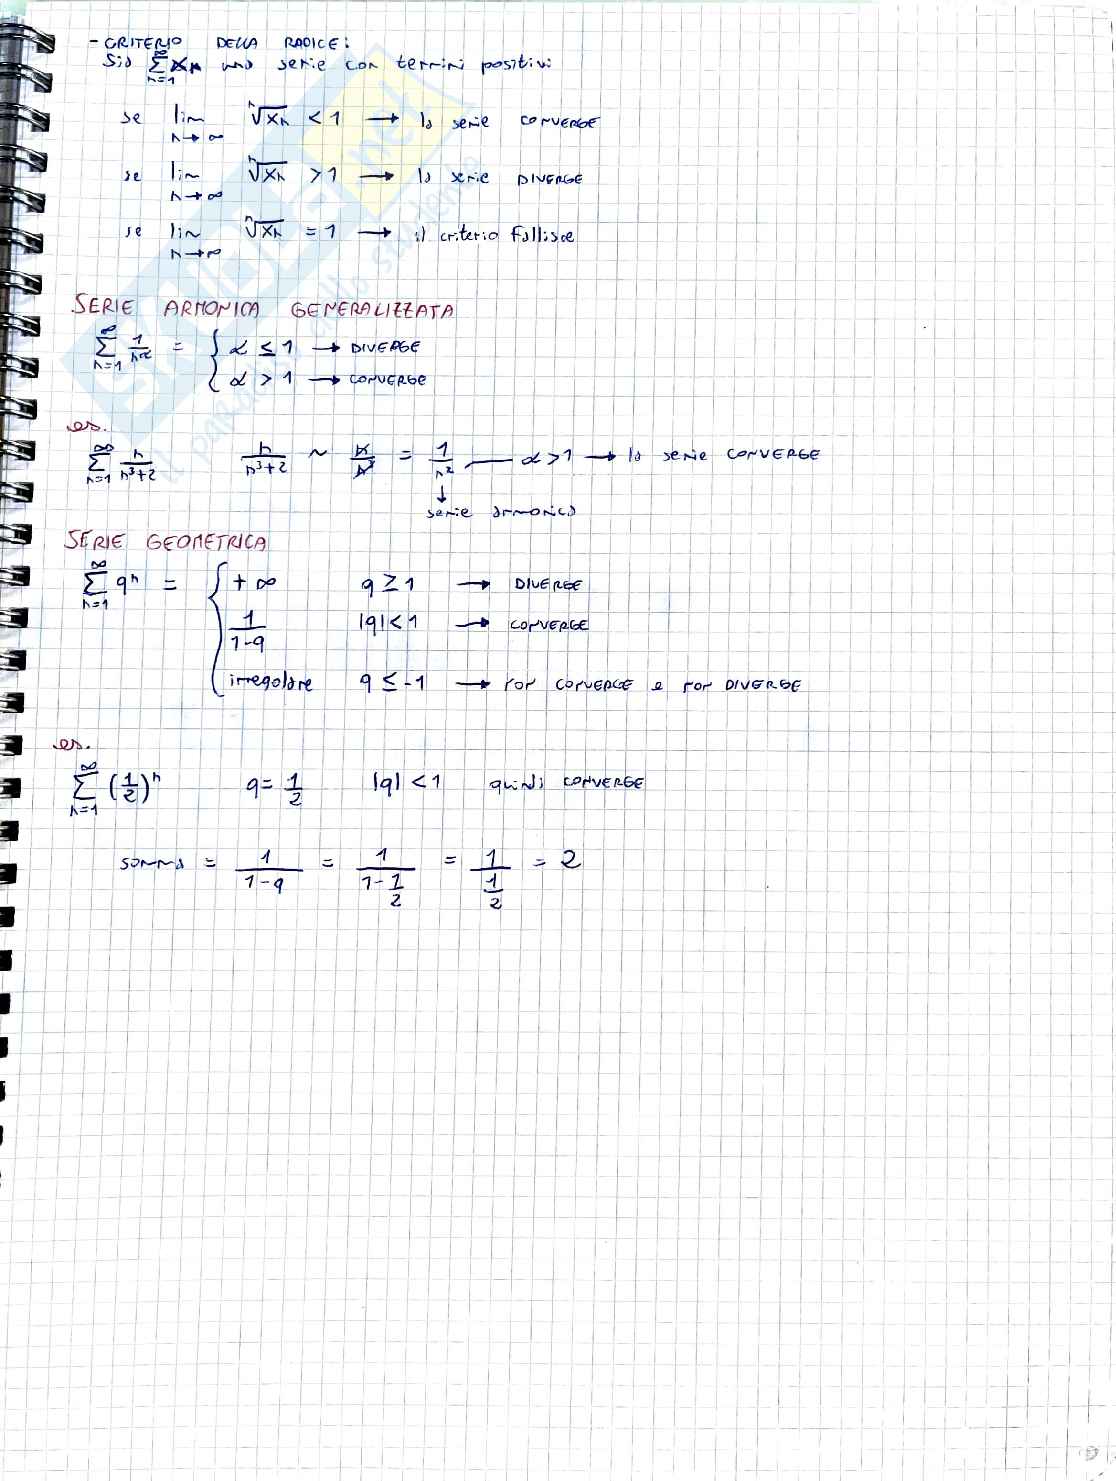 - CRITERIO DELLA RADICE:
Sia ∑_{n=1}^{∞} xn una serie con termini positivi
se lim_{n→∞} ⁿ√xn < 1 → la serie CONVERGE
se lim_{n→∞} ⁿ√xn > 1 → la serie DIVERGE
se lim_{n→∞} ⁿ√xn = 1 → il criterio fallisce
SERIE ARMONICA GENERALIZZATA
∑_{n=1}^{∞} 1/n^α = { α ≤ 1 → DIVERGE
α > 1 → CONVERGE
es.
∑_{n=1}^{∞} n/(n³+2) n/(n³+2) ~ n/n³ = 1/n² — α > 1 → la serie CONVERGE
↓
serie armonica
SERIE GEOMETRICA
∑_{n=1}^{∞} qⁿ = { +∞ q ≥ 1 → DIVERGE
1/(1-q) |q| < 1 → CONVERGE
irregolare q ≤ -1 → non CONVERGE e non DIVERGE
es.
∑_{n=1}^{∞} (1/2)ⁿ q = 1/2 |q| < 1 quindi CONVERGE
somma = 1/(1-q) = 1/(1-1/2) = 1/(1/2) = 2
SKUOLA.net
il paradiso dello studente